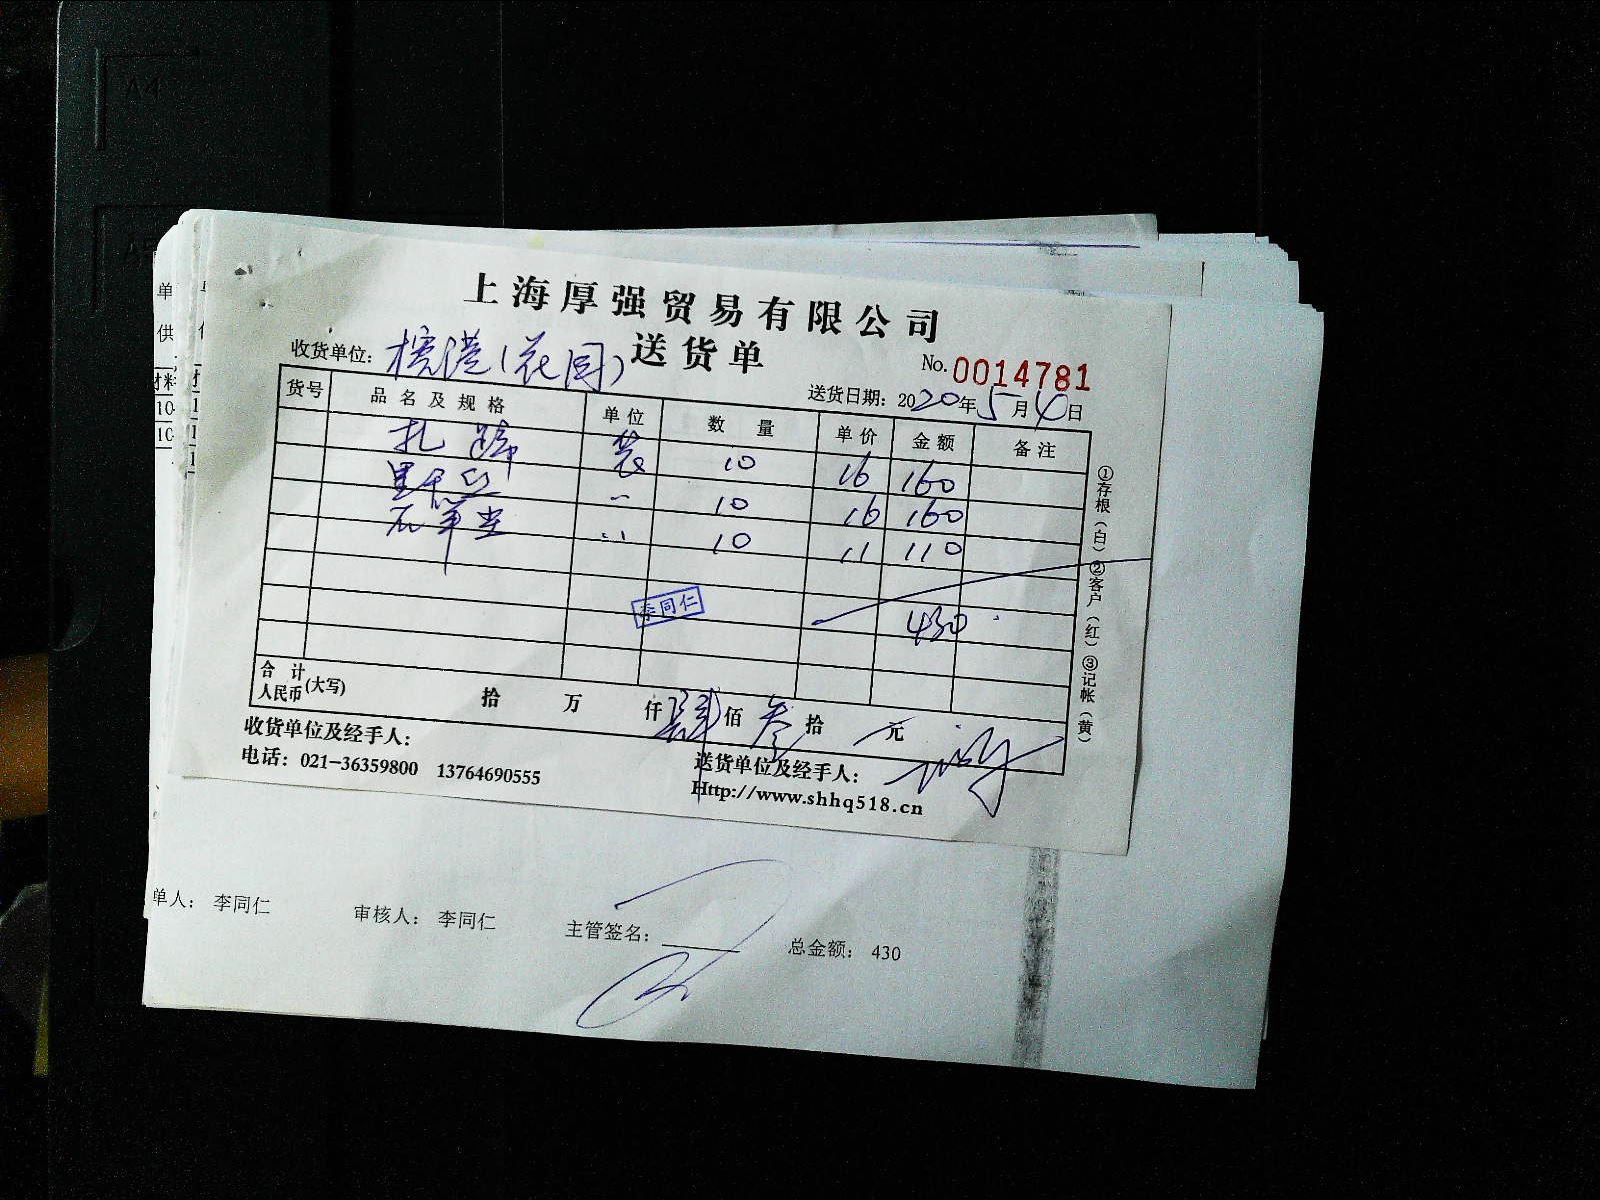 A4
A5
单
供
材料
10
10
上海厚强贸易有限公司
送货单
收货单位: (花园)
No. 0014781
送货日期: 2020年5月4日
货号 品名及规格 单位 数量 单价 金额 备注
扎蹄 袋 10 16 160
10 16 160
10 11 110
李同仁
430
合计
人民币(大写) 拾 万 仟肆佰叁拾 元
收货单位及经手人:
电话: 021-36359800 13764690555
送货单位及经手人:
Http://www.shhq518.cn
①存根(白)②客户(红)③记帐(黄)
单人: 李同仁 审核人: 李同仁 主管签名: 总金额: 430